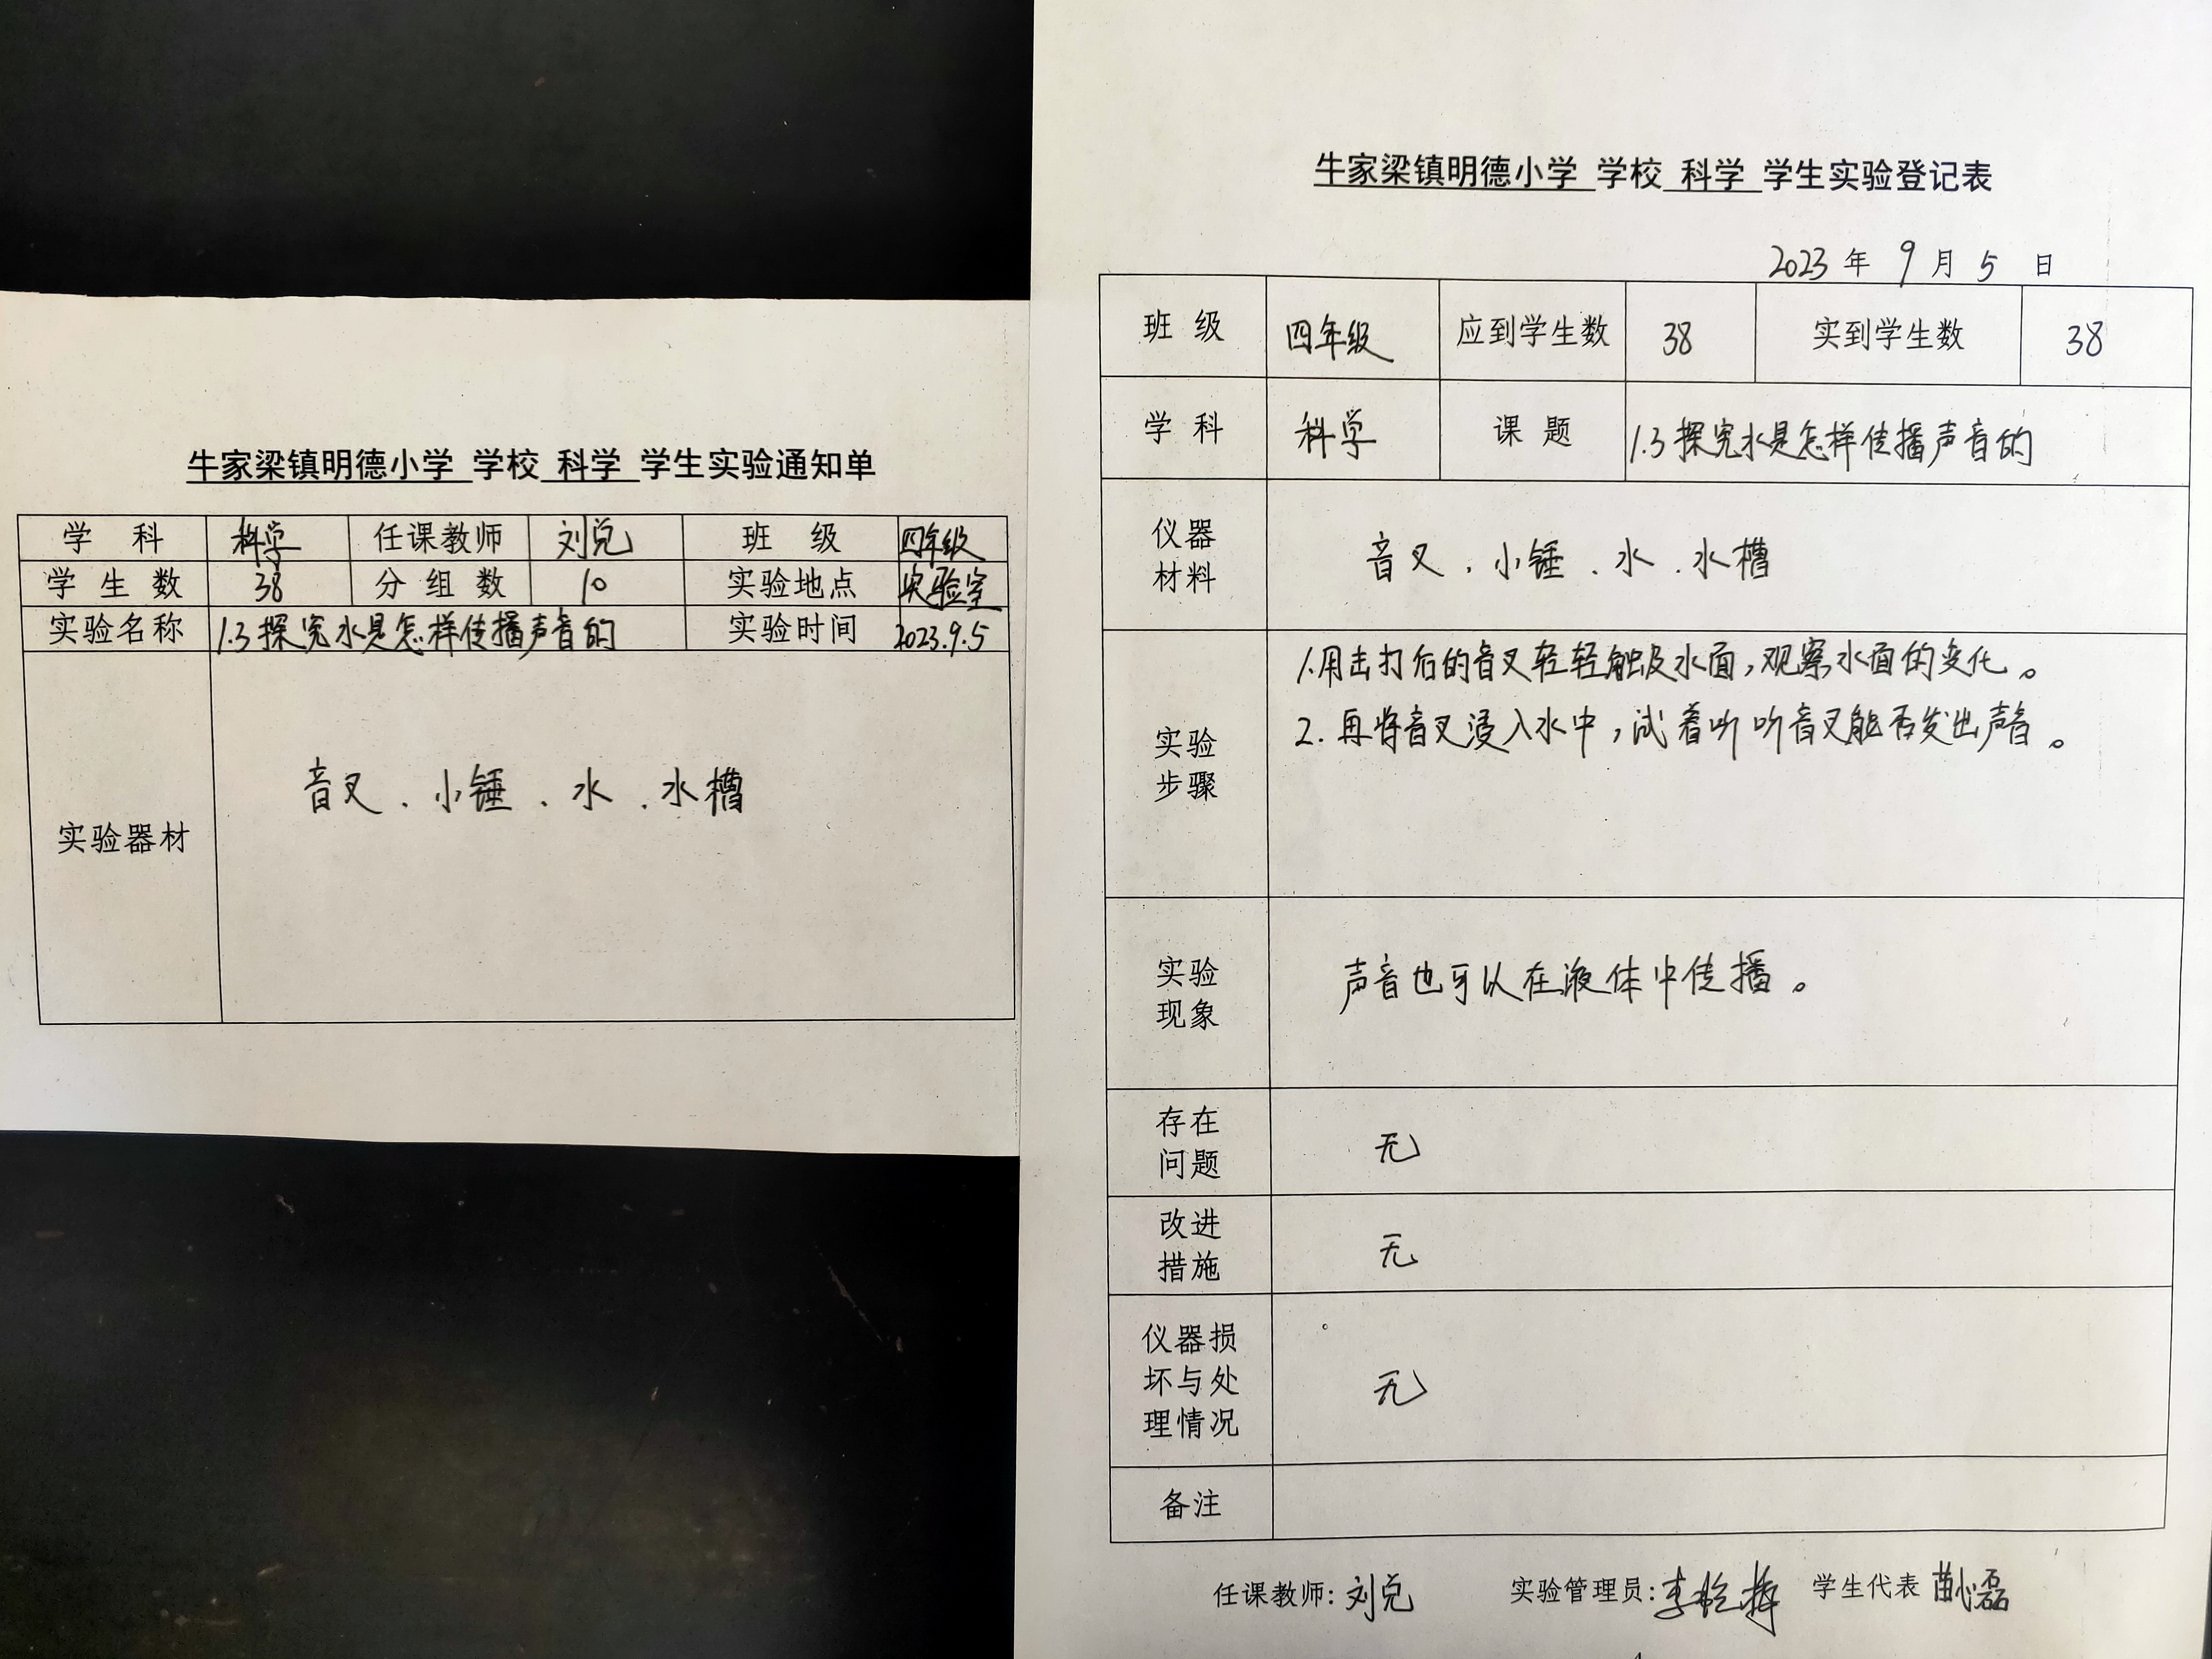 牛家梁镇明德小学 学校 科学 学生实验通知单
学 科 科学 任课教师 刘兑 班 级 四年级
学 生 数 38 分 组 数 10 实验地点 实验室
实验名称 1.3探究水是怎样传播声音的 实验时间 2023.9.5
实验器材 音叉、小锤、水、水槽
牛家梁镇明德小学 学校 科学 学生实验登记表
2023 年 9 月 5 日
班 级 四年级 应到学生数 38 实到学生数 38
学 科 科学 课 题 1.3探究水是怎样传播声音的
仪器
材料
音叉、小锤、水、水槽
实验
步骤
1.用击打后的音叉轻轻触及水面,观察水面的变化。
2.再将音叉浸入水中,试着听听音叉能否发出声音。
实验
现象
声音也可以在液体中传播。
存在
问题
无
改进
措施
无
仪器损
坏与处
理情况
无
备注
任课教师: 刘兑 实验管理员: 学生代表